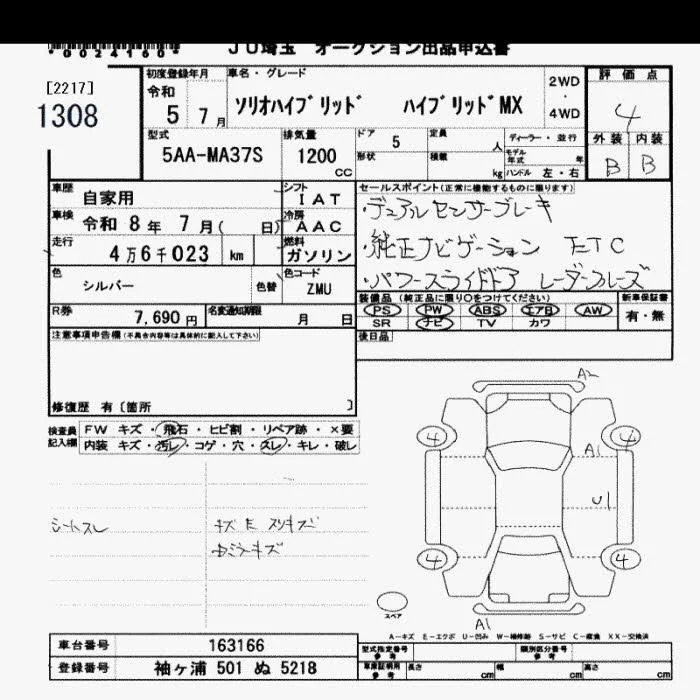 *0024160*
JU埼玉 オークション出品申込書
[2217]
1308
初度登録年月
令和
5 7月
車名・グレード
ソリオハイブリッド ハイブリッドMX
2WD
・
4WD
評価点
4
外装 内装
B B
型式
5AA-MA37S
排気量
1200
CC
ドア 5
定員 人
形状
積載 kg
ディーラー・並行
モデル年式 年
ハンドル 左・右
車歴
自家用
シフト
IAT
車検
令和 8年 7月( 日)
冷房
AAC
走行
4万6千023 km
燃料
ガソリン
色
シルバー
色替
色コード
ZMU
R券
7,690円
名変通知期限
月 日
セールスポイント(正常に機能するものに限ります)
・デュアルセンサーブレーキ
・純正ナビゲーション ETC
・パワースライドドア レーダークルーズ
装備品(純正品に限り○をつけてください)
PS PW ABS エアB AW
SR ナビ TV カワ
新車保証書
有・無
後日品
注意事項申告欄(不具合内容等は具体的に記入して下さい)
修復歴 有〔箇所 〕
検査員記入欄
FW キズ・飛石・ヒビ割・リペア跡・×要
内装 キズ・汚レ・コゲ・穴・スレ・キレ・破レ
シートスレ
A2
4 4
A1
U1
4 4
A1
スペア
A-キズ E-エクボ U-凹み W-補修跡 S-サビ C-腐食 XX-交換済
車台番号 163166
登録番号 袖ヶ浦 501 ぬ 5218
型式指定番号 参考
類別区分番号 参考
車庫証明用 参考
長さ cm
幅 cm
高さ cm